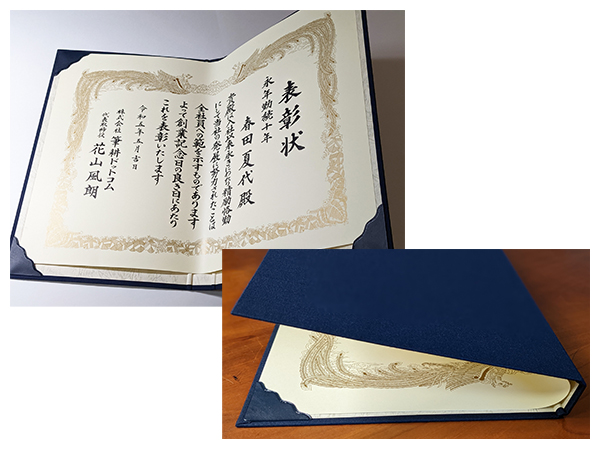 表彰状
永年勤続十年
春田夏代殿
貴殿は入社以来永きにわたり精励恪勤
にして当社の発展に努力されたことは
全社員への範を示すものであります
よって創業記念日の良き日にあたり
これを表彰いたします
令和五年五月吉日
株式会社筆耕ドットコム
代表取締役 花山風朗